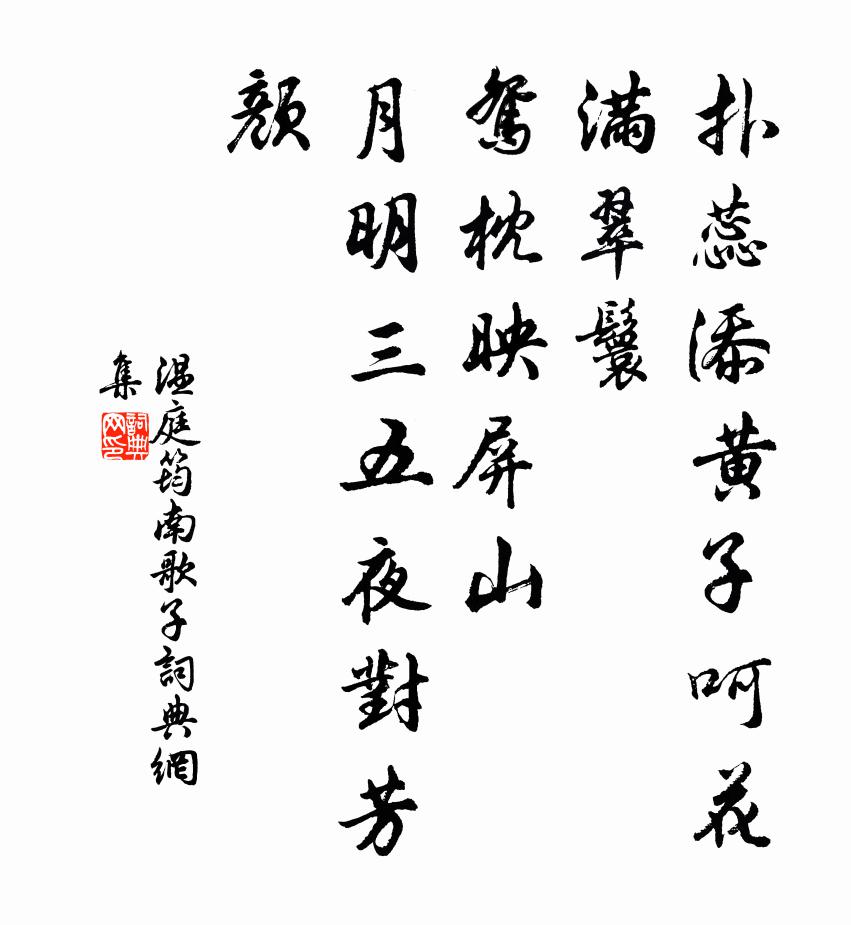 扑蕊添黄子呵花
滿翠鬟
鴛枕映屏山
月明三五夜對芳
顏
温庭筠南歌子詞典網
集
詞典
网印